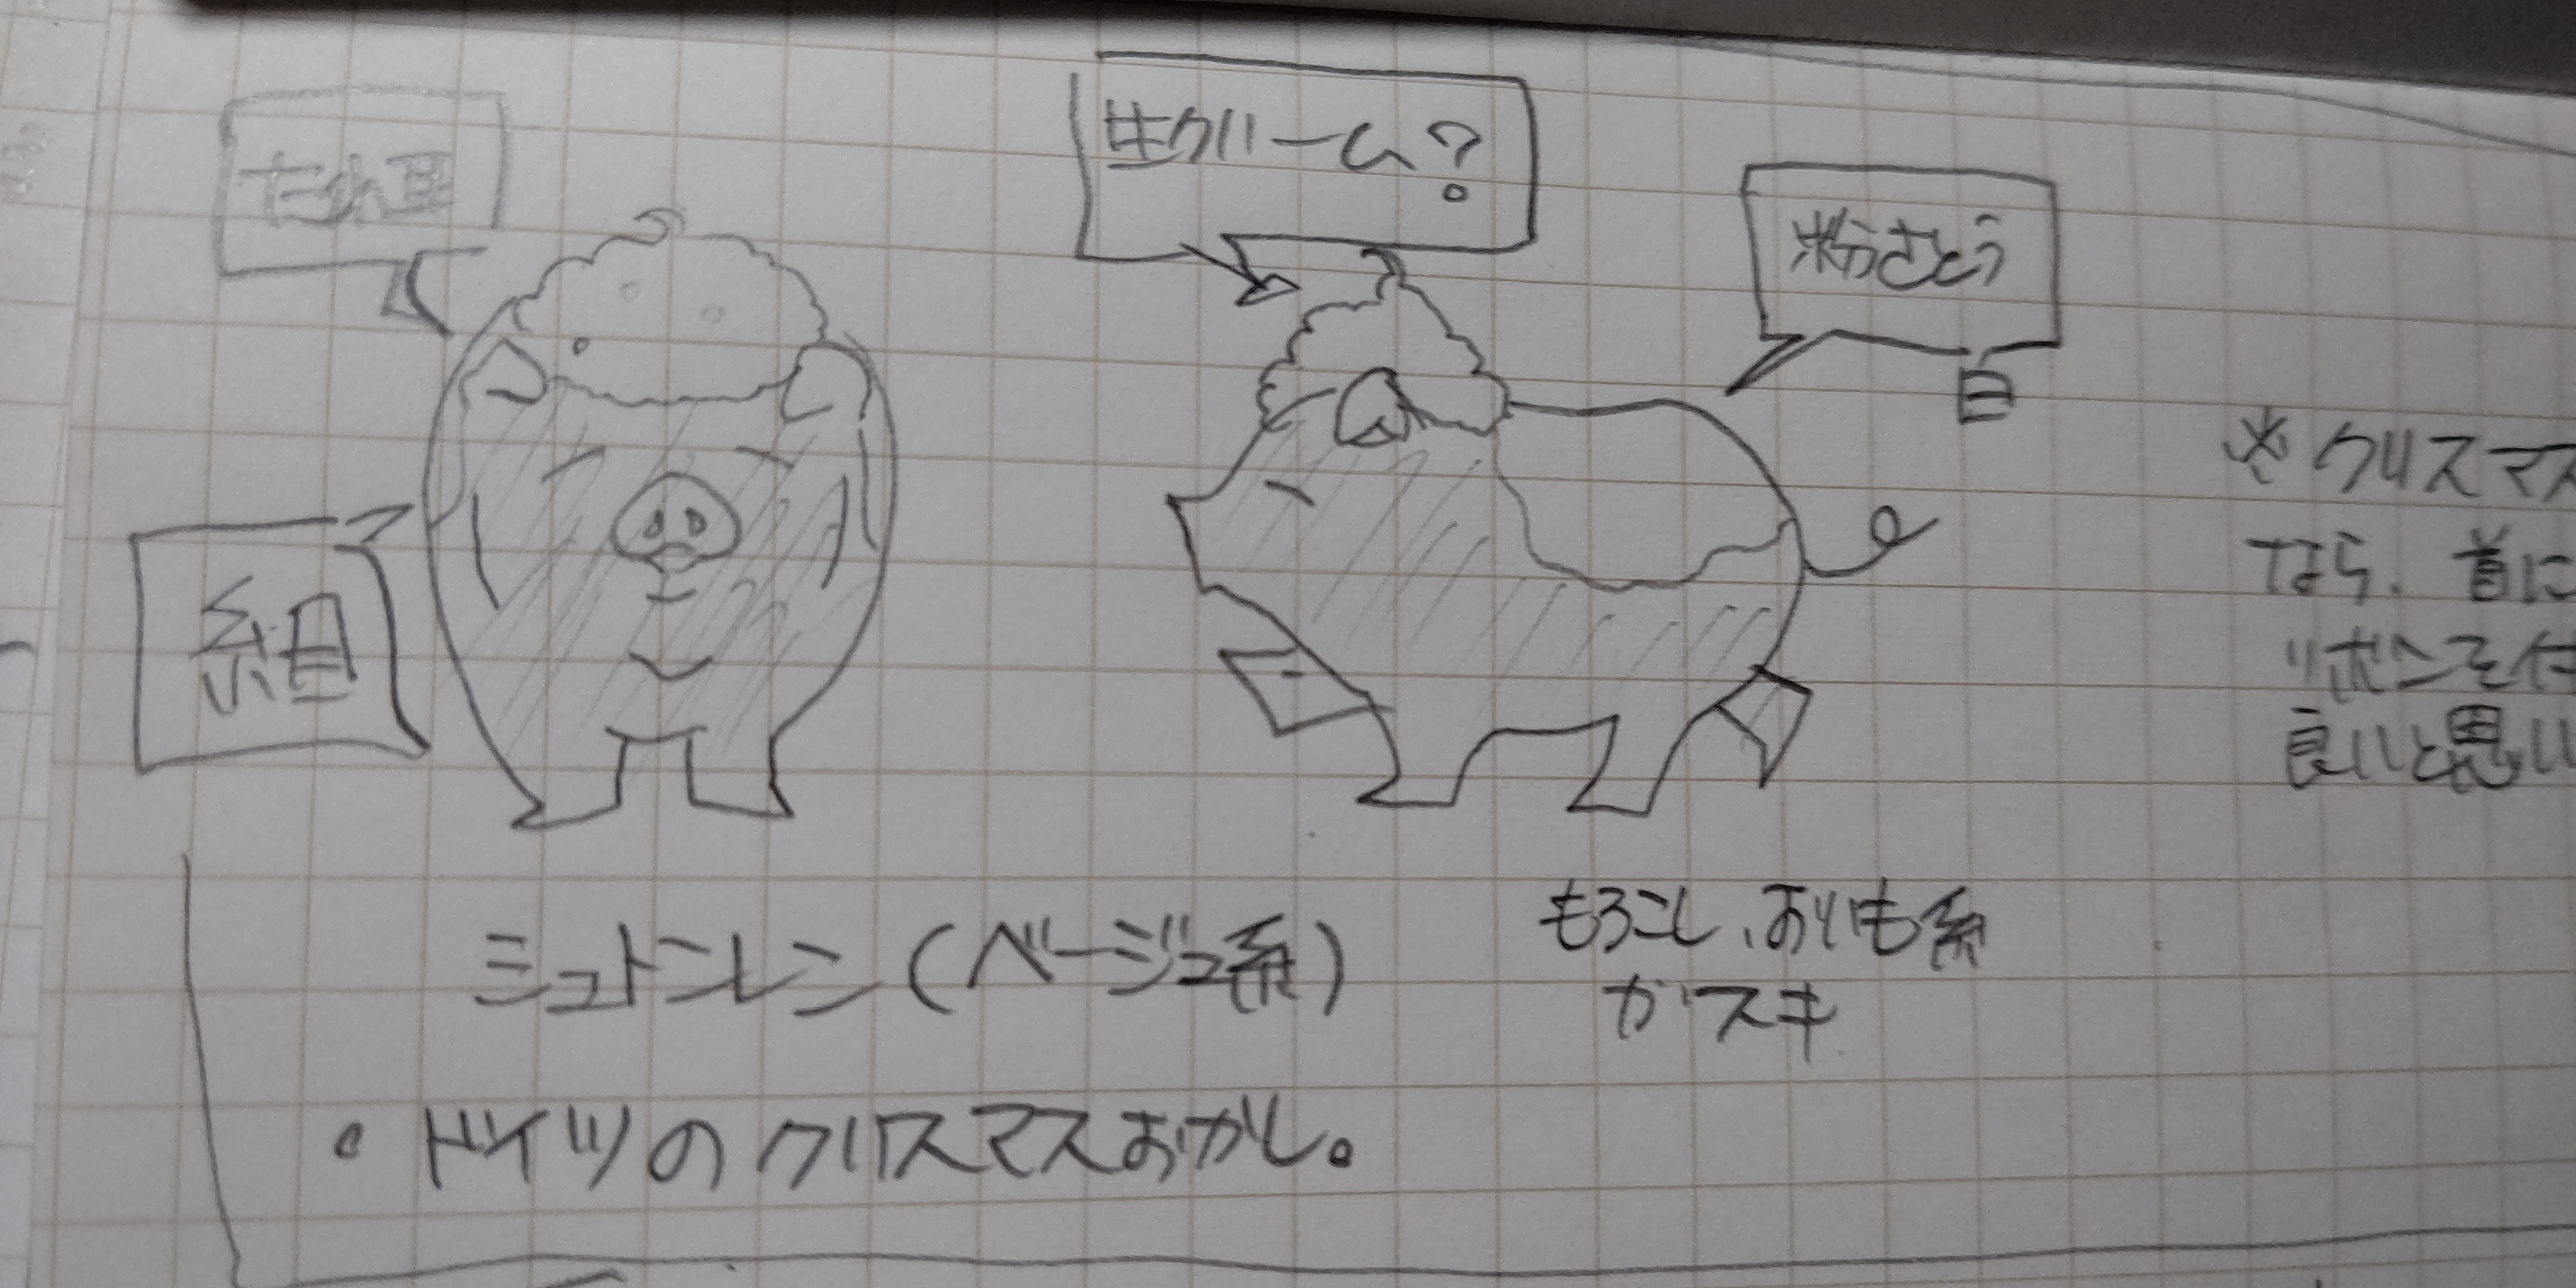 たれ耳
生クリーム?
粉さとう
細目
※クリスマス
なら、首に
リボンを付
良いと思い
ミュトンレン(ベージュ系)
もろこし、おいも系
がスキ
・ドイツのクリスマスおかし。